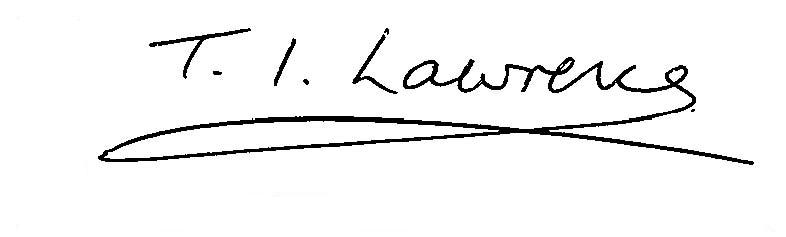 T. I. Lawrence